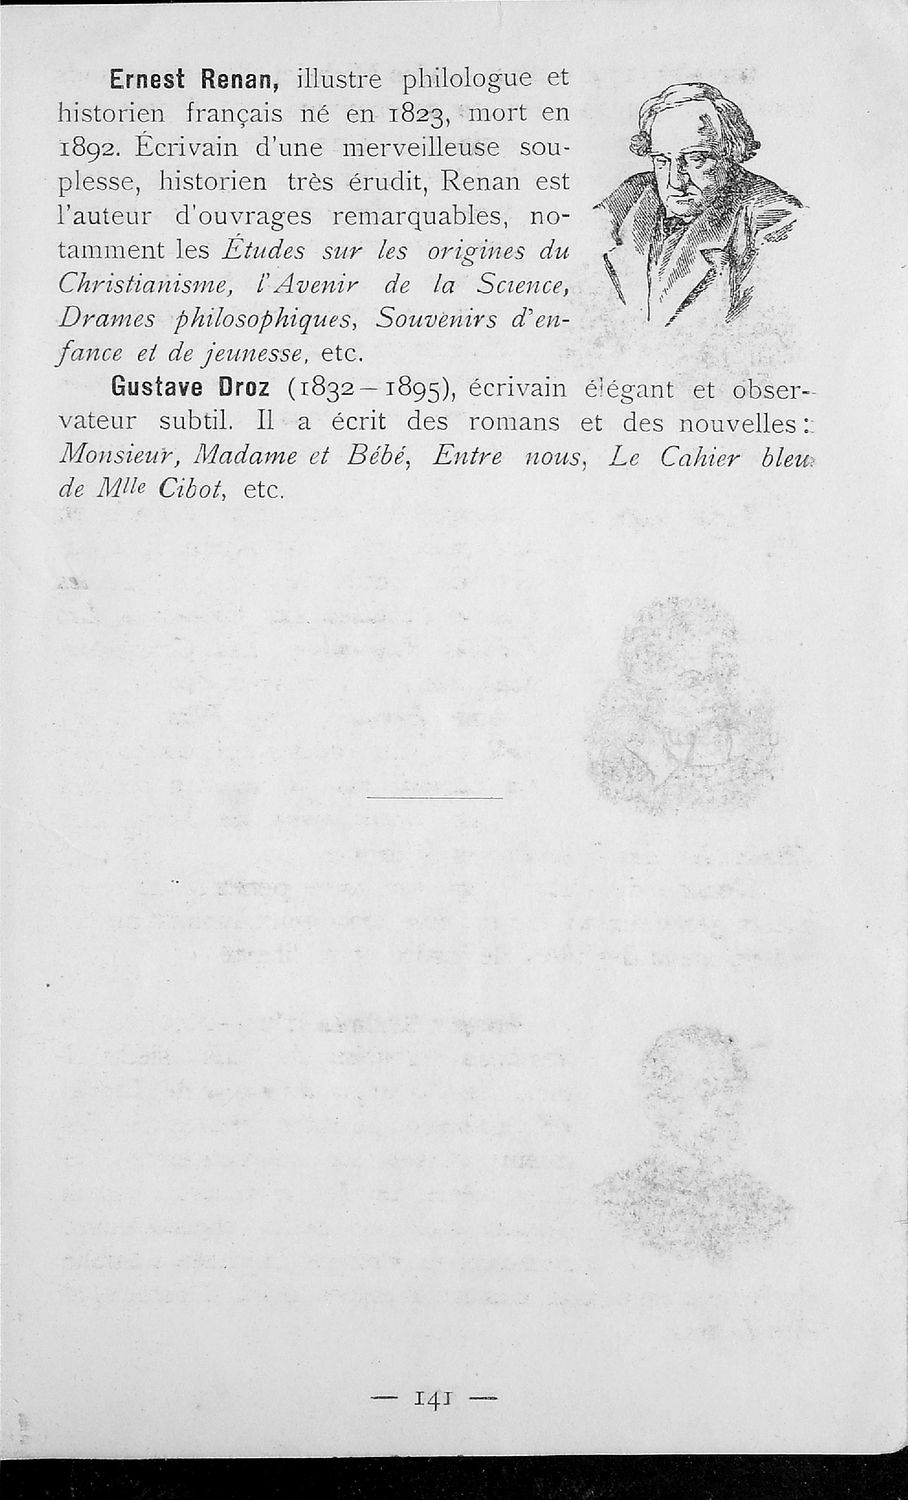 Ernest Renan, illustre philologue et
historien français né en 1823, mort en
1892. Écrivain d'une merveilleuse sou-
plesse, historien très érudit, Renan est
l'auteur d'ouvrages remarquables, no-
tamment les Études sur les origines du
Christianisme, l'Avenir de la Science,
Drames philosophiques, Souvenirs d'en-
fance et de jeunesse, etc.
Gustave Droz (1832–1895), écrivain élégant et obser-
vateur subtil. Il a écrit des romans et des nouvelles :
Monsieur, Madame et Bébé, Entre nous, Le Cahier bleu
de Mlle Cibot, etc.
— 141 —